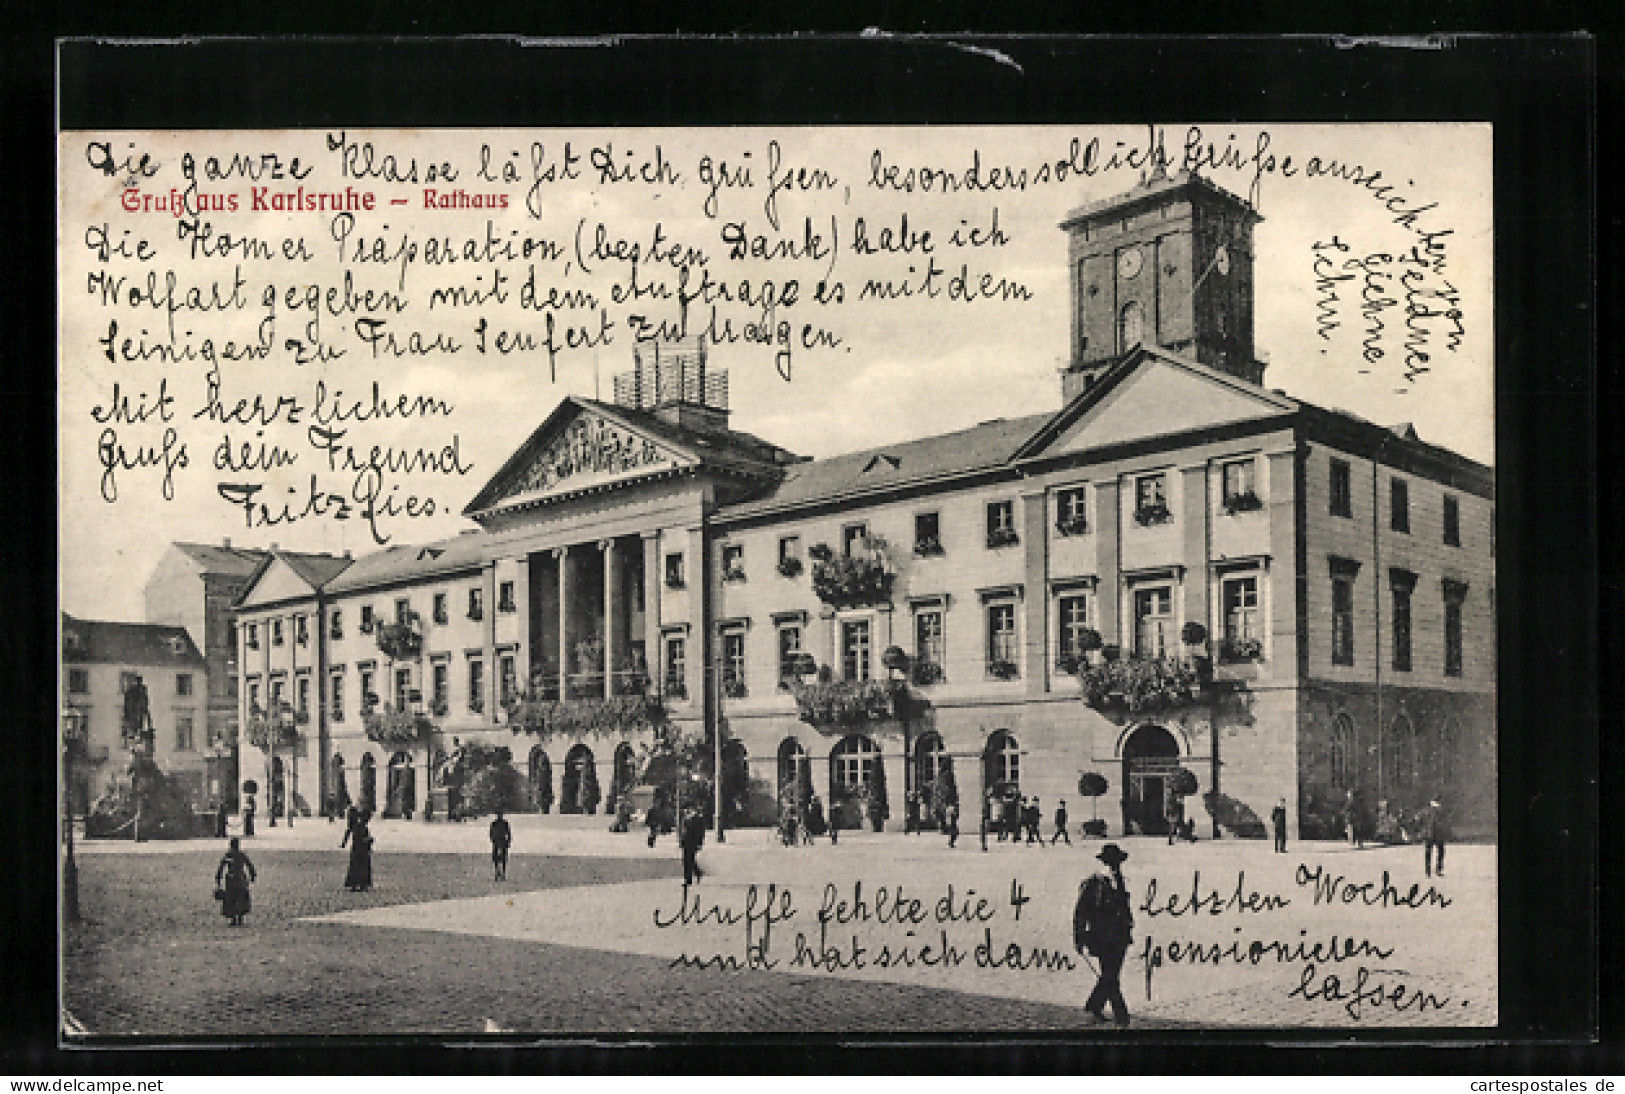 Die ganze Klasse läßst Dich grüßsen, besonders soll ich Grüßse ausrichten von
Feldner,
Giehne,
Schur.
Gruß aus Karlsruhe – Rathaus
Die Homer Präparation, (besten Dank) habe ich
Wolfart gegeben mit dem Auftrage es mit dem
Seinigen zu Frau Senfert zu tragen.
Mit herzlichem
Gruß dein Freund
Fritz Ries.
Muffl fehlte die 4 letzten Wochen
und hat sich dann pensionieren
laßsen.
Ref-x-ries
cartespostales de